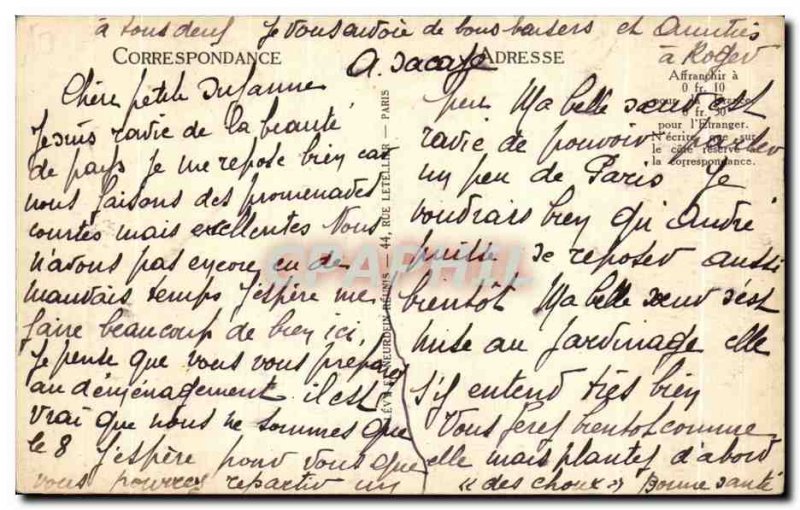 à tous deux Je vous envoie de bons baisers et Amitiés
à Roger
CORRESPONDANCE
ADRESSE
Affranchir à
0 fr. 10
0 fr. 30
pour l'Etranger.
N'écrire que sur
le côté réservé à
la correspondance.
Chère petite Suzanne
Je suis ravie de la beauté
de pays Je me repose bien car
nous faisons des promenades
courtes mais excellentes Nous
n'avons pas encore eu de
mauvais temps J'espère me
faire beaucoup de bien ici,
Je pense que vous vous préparez
au déménagement il est
vrai que nous ne sommes que
le 8 J'espère pour vous que
vous pourrez repartir un
LÉVY ET NEURDEIN RÉUNIS — 44, RUE LETELLIER — PARIS
peu Ma belle sœur est
ravie de pouvoir parler
un peu de Paris Je
voudrais bien qu'André
puisse se reposer aussi
bientôt Ma belle sœur s'est
mise au Jardinage elle
s'y entend très bien
Vous ferez bientôt comme
elle mais plantez d'abord
"des choux" Bonne santé
CPAPHIL